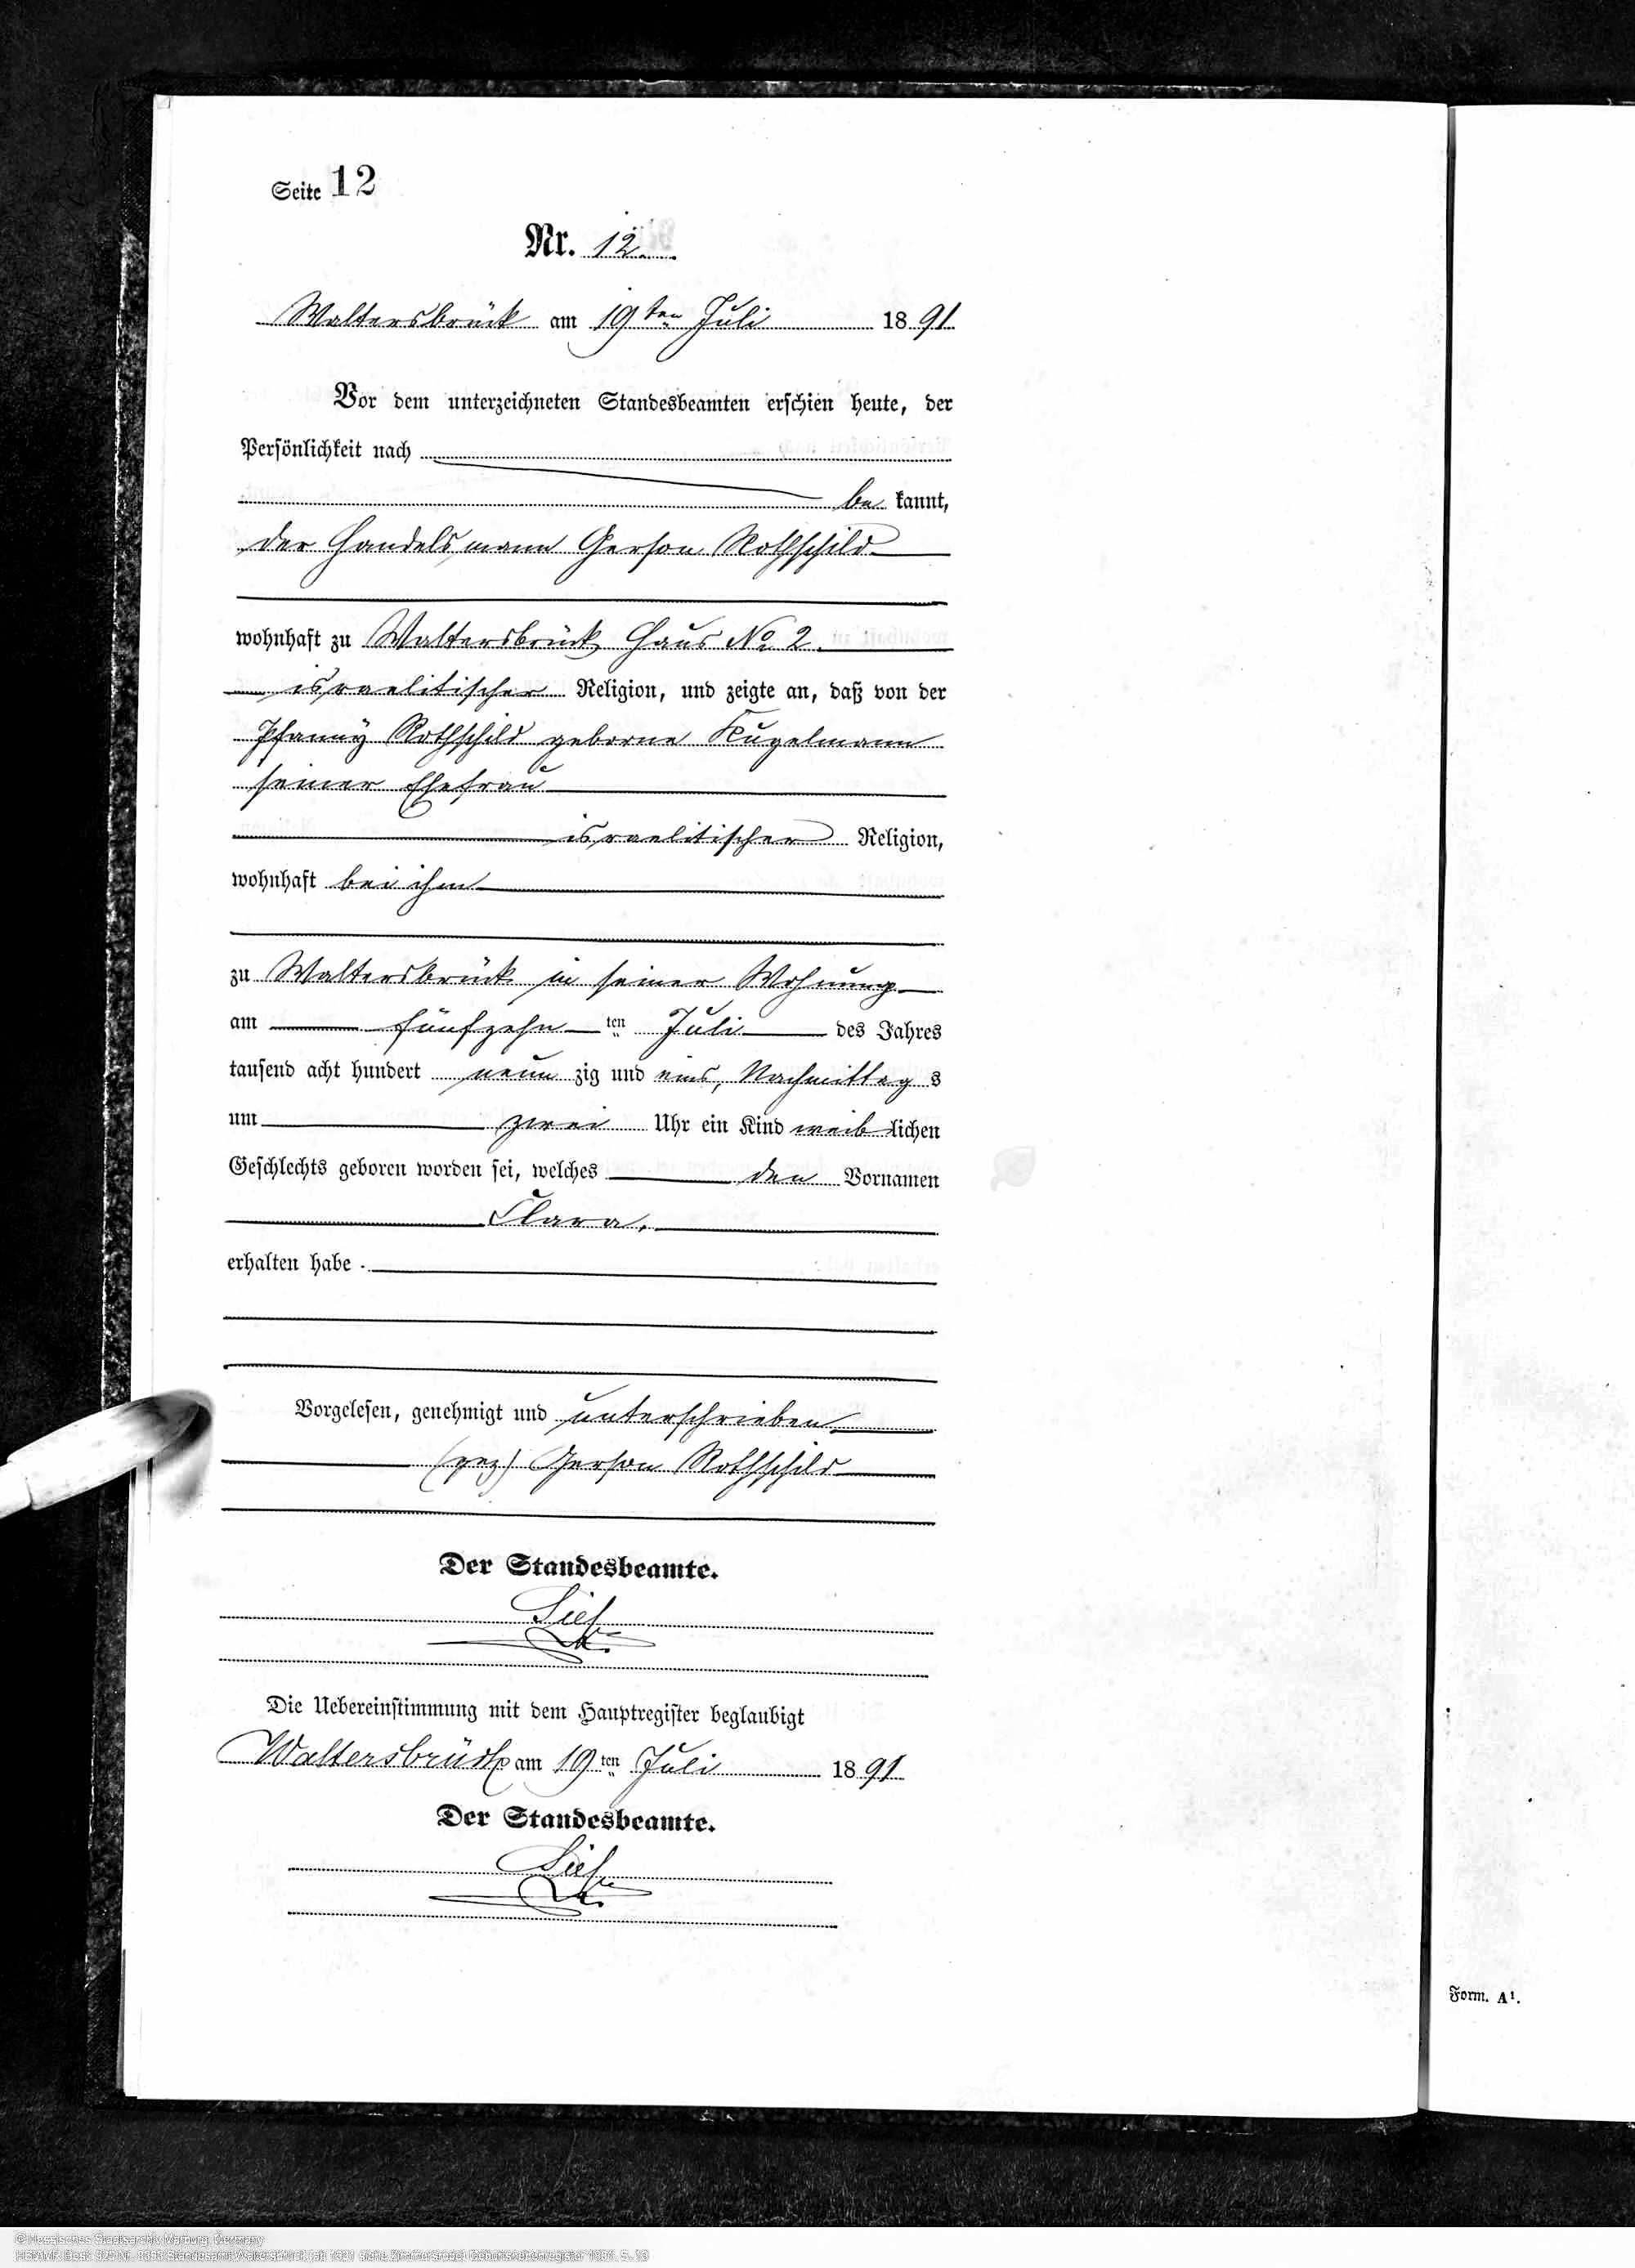 Seite 12
Nr. 12.
Waltersbrück am 19ten Juli 1891
Vor dem unterzeichneten Standesbeamten erschien heute, der
Persönlichkeit nach
be kannt,
der Handelsmann Gerson Rothschild
wohnhaft zu Waltersbrück Haus No 2.
israelitischer Religion, und zeigte an, daß von der
Pfanny Rothschild geborne Kugelmann
seiner Ehefrau
israelitischer Religion,
wohnhaft bei ihm
zu Waltersbrück in seiner Wohnung
am fünfzehn ten Juli des Jahres
tausend acht hundert neun zig und eins, Nachmittag s
um zwei Uhr ein Kind weib lichen
Geschlechts geboren worden sei, welches den Vornamen
Clara,
erhalten habe
Vorgelesen, genehmigt und unterschrieben
(gez) Gerson Rothschild
Der Standesbeamte.
Die Uebereinstimmung mit dem Hauptregister beglaubigt
Waltersbrück am 19 ten Juli 1891
Der Standesbeamte.
Form. A1.
© Hessisches Staatsarchiv Marburg, Germany